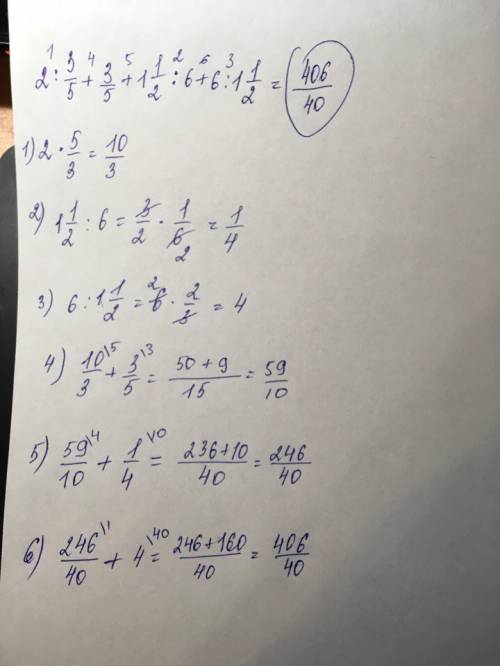 2 : 3/5 + 3/5 + 1 1/2 : 6 + 6 : 1 1/2 = 406/40
1) 2 · 5/3 = 10/3
2) 1 1/2 : 6 = 3/2 · 1/6 = 1/4
3) 6 : 1 1/2 = 6 · 2/3 = 4
4) 10/3 + 3/5 = 50+9/15 = 59/10
5) 59/10 + 1/4 = 236+10/40 = 246/40
6) 246/40 + 4 = 246+160/40 = 406/40